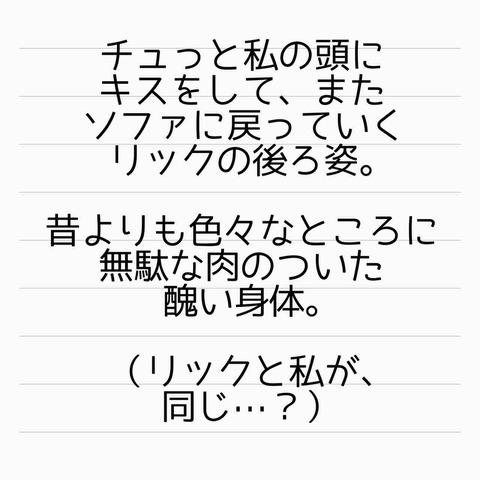 チュっと私の頭に
キスをして、また
ソファに戻っていく
リックの後ろ姿。
昔よりも色々なところに
無駄な肉のついた
醜い身体。
（リックと私が、
同じ…？）